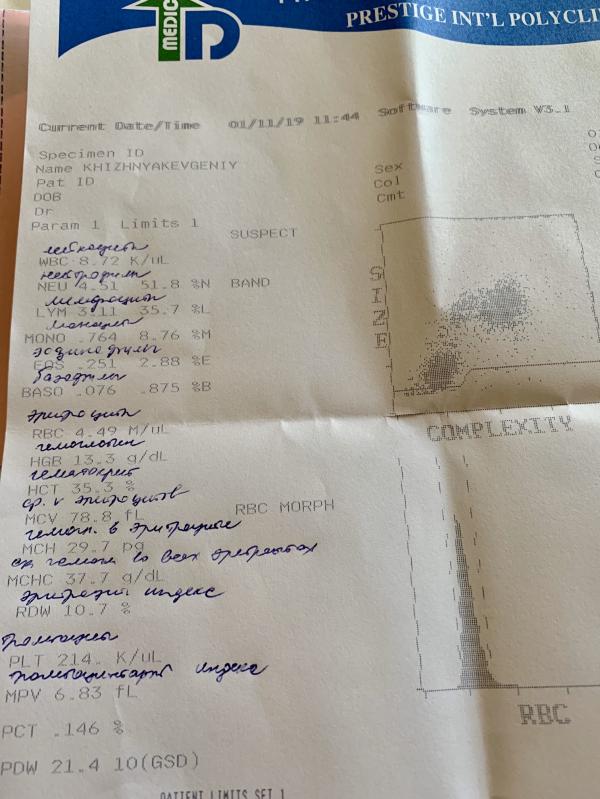 MEDIC
PRESTIGE INT'L POLYCLI
Current Date/Time 01/11/19 11:44 Software System V3.1
Specimen ID
Name KHIZHNYAKEVGENIY
Pat ID
DOB
Dr
Sex
Col
Cmt
Param 1 Limits 1
SUSPECT
лейкоциты
WBC 8.72 K/uL
нейтрофилы
NEU 4.51 51.8 %N BAND
лимфоциты
LYM 3.11 35.7 %L
моноциты
MONO .764 8.76 %M
эозинофилы
EOS .251 2.88 %E
базофилы
BASO .076 .875 %B
SIZE
COMPLEXITY
эритроциты
RBC 4.49 M/uL
гемоглобин
HGB 13.3 g/dL
гематокрит
HCT 35.3 %
ср. v эритроцитов
MCV 78.8 fL RBC MORPH
гемогл. в эритроците
MCH 29.7 pg
ср гемогл во всех эритроцитах
MCHC 37.7 g/dL
эритроцит индекс
RDW 10.7 %
тромбоциты
PLT 214. K/uL
тромбоцитарный индекс
MPV 6.83 fL
RBC
PCT .146 %
PDW 21.4 10(GSD)
PATIENT LIMITS SET 1